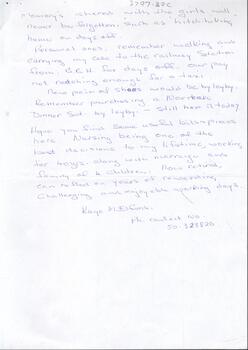 3797.27C
Memories shared with the girls will
never be forgotten. Such as hitchhiking
home on days off.
Personal ones. remember walking and
carrying my case to the railway Station
from G.B.H for days off. Our pay
not reaching enough for a taxi.
New pair of shoes would be by layby.
Remember purchasing a
Dinner Set by layby. Still have it today
Hope you find some useful bits & pieces
here. Nursing being one of the
best decisions to my lifetime, working
for 40yrs, along with marriage and
family of 4 children. Now retired,
can reflect on years of rewarding,
challenging and enjoyable working days
Kaye
Ph. contact No.
50.323820